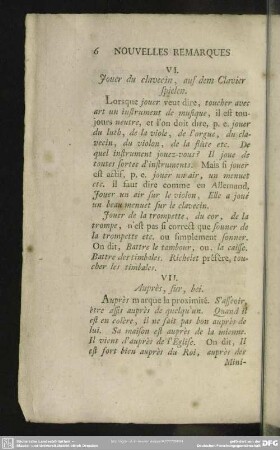 6 NOUVELLES REMARQUES
VI.
Jouer du clavecin, auf dem Clavier
spielen.
Lorsque jouer veut dire, toucher avec
art un instrument de musique, il est tou-
jours neutre, et l'on doit dire, p. e. jouer
du luth, de la viole, de l'orgue, du cla-
vecin, du violon, de la flûte etc. De
quel instrument jouez-vous? Il joue de
toutes sortes d'instruments. Mais si jouer
est actif, p. e. jouer un air, un menuet
etc. il faut dire comme en Allemand,
Jouer un air sur le violon, Elle a joué
un beau menuet sur le clavecin.
Jouer de la trompette, du cor, de la
trompe, n'est pas si correct que sonner de
la trompette etc. ou simplement sonner.
On dit, Battre le tambour, ou, la caisse,
Battre des timbales. Richelet préfère, tou-
cher les timbales.
VII.
Auprès, sur, bei.
Auprès marque la proximité. S'asseoir,
être assis auprès de quelqu'un. Quand il
est en colère, il ne fait pas bon auprès de
lui. Sa maison est auprès de la mienne.
Il vient d'auprès de l'Eglise. On dit, Il
est fort bien auprès du Roi, auprès des
Mini-